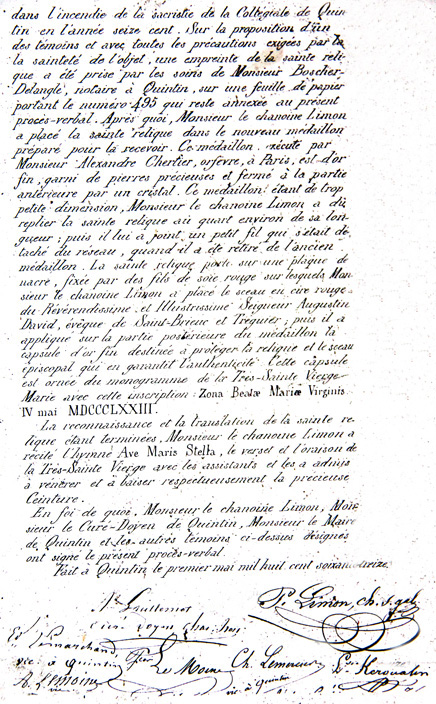 dans l'incendie de la sacristie de la Collégiale de Quin
tin en l'année seize cent. Sur la proposition d'un
des témoins et avec toutes les précautions exigées par la
la sainteté de l'objet, une empreinte de la sainte reli-
que a été prise par les soins de Monsieur Boscher-
Delangle, notaire à Quintin, sur une feuille de papier
portant le numéro 495 qui reste annexée au présent
procès-verbal. Après quoi, Monsieur le chanoine Limon
a placé la sainte relique dans le nouveau médaillon
préparé pour la recevoir. Ce médaillon, exécuté par
Monsieur Alexandre Chertier, orfèvre, à Paris, est d'or
fin, garni de pierres précieuses et fermé à la partie
antérieure par un cristal. Ce médaillon étant de trop
petite dimension, Monsieur le chanoine Limon a dû
replier la sainte relique au quart environ de sa lon-
gueur; puis il lui a joint un petit fil qui s'était dé-
taché du réseau, quand il a été retiré de l'ancien
médaillon. La sainte relique posée sur une plaque de
nacre, fixée par des fils de soie rouge sur lesquels Mon
sieur le chanoine Limon a placé le sceau en cire rouge
du Révérendissime et Illustrissime Seigneur Augustin
David, évêque de Saint-Brieuc et Tréguier; puis il a
appliqué sur la partie postérieure du médaillon la
capsule d'or fin destinée à protéger la relique et le sceau
épiscopal qui en garantit l'authenticité. Cette capsule
est ornée du monogramme de la Très-Sainte Vierge
Marie avec cette inscription: Zona Beatæ Mariæ Virginis
IV mai MDCCCLXXIII.
La reconnaissance et la translation de la sainte re-
lique étant terminées, Monsieur le chanoine Limon a
récité l'hymne Ave Maris Stella, le verset et l'oraison de
la Très-Sainte Vierge avec les assistants et les a admis
à vénérer et à baiser respectueusement la précieuse
Ceinture.
En foi de quoi, Monsieur le chanoine Limon, Mon-
sieur le Curé-Doyen de Quintin, Monsieur le Maire
de Quintin et les autres témoins ci-dessus désignés
ont signé le présent procès-verbal.
Fait à Quintin, le premier mai mil huit cent soixante treize.
Guillemot
P. Limon, ch.
Le Moine
Ch. Lemercier
vic. à Quintin
vic. à Quintin
A. Lemoine
Kerouallan